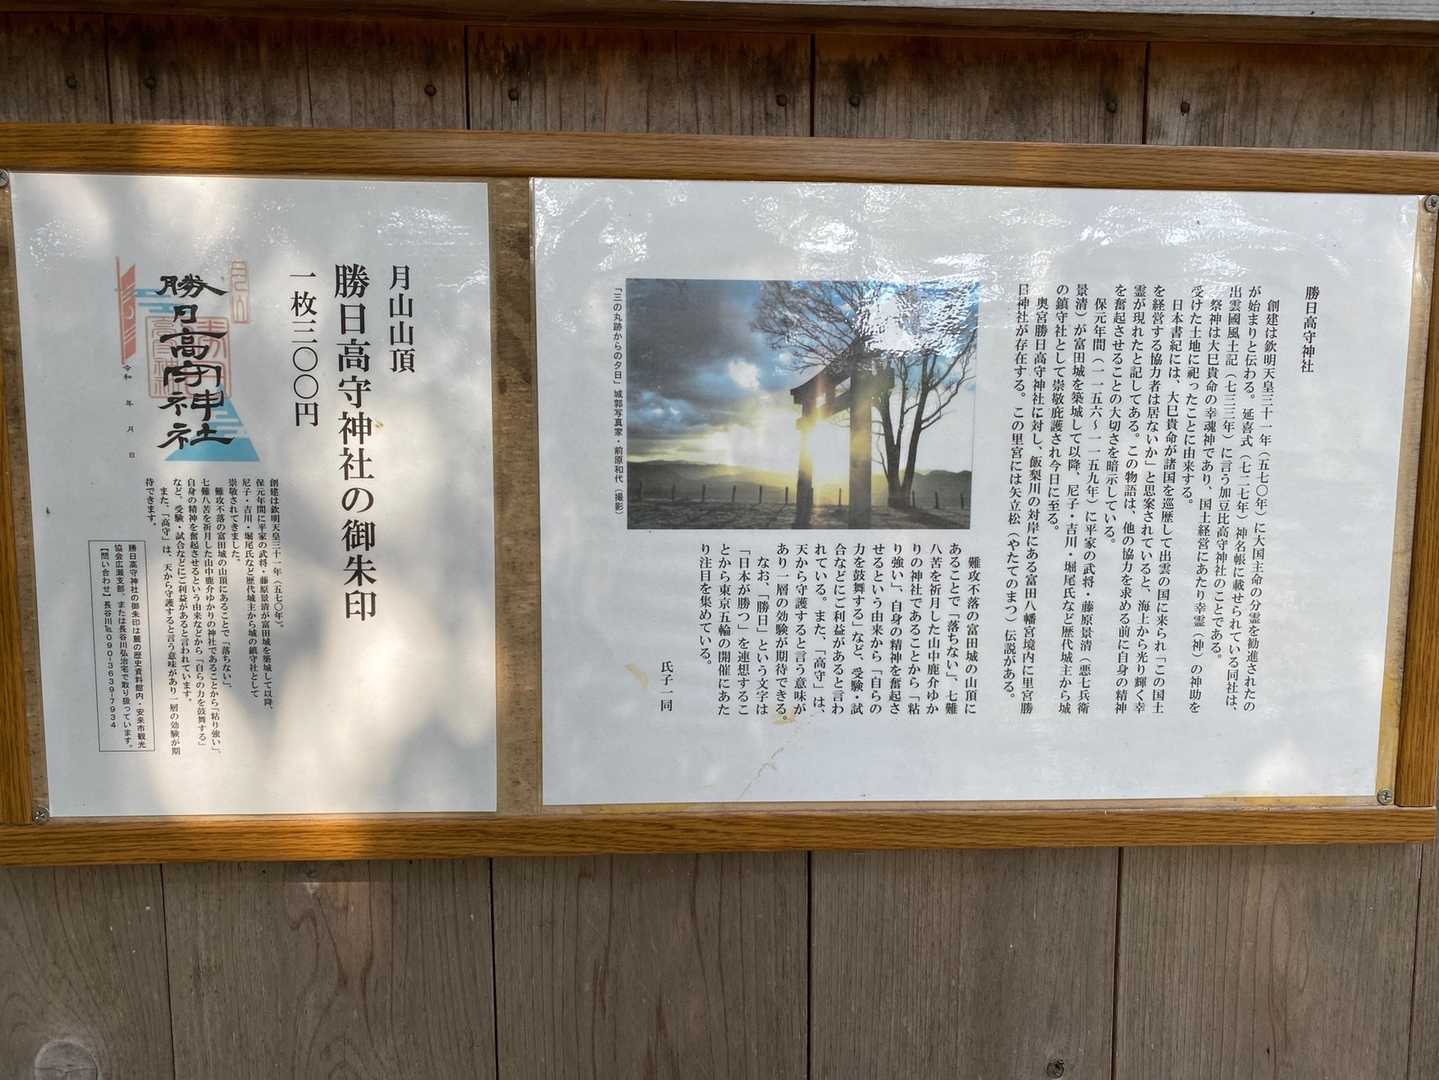 勝日高守神社
創建は欽明天皇三十一年（五七〇年）に大国主命の分霊を勧進されたの
が始まりと伝わる。延喜式（七二七年）神名帳に載せられている同社は、
出雲國風土記（七三三年）に言う加豆比高守神社のことである。
祭神は大巳貴命の幸魂神であり、国土経営にあたり幸霊（神）の神助を
受けた土地に祀ったことに由来する。
日本書紀には、大巳貴命が諸国を巡歴して出雲の国に来られ「この国土
を経営する協力者は居ないか」と思案されていると、海上から光り輝く幸
霊が現れたと記してある。この物語は、他の協力を求める前に自身の精神
を奮起させることの大切さを暗示している。
保元年間（一一五六～一一五九年）に平家の武将・藤原景清（悪七兵衛
景清）が富田城を築城して以降、尼子・吉川・堀尾氏など歴代城主から城
の鎮守社として崇敬庇護され今日に至る。
奥宮勝日高守神社に対し、飯梨川の対岸にある富田八幡宮境内に里宮勝
日神社が存在する。この里宮には矢立松（やたてのまつ）伝説がある。
「三の丸跡からの夕日」城郭写真家・前原和代（撮影）
難攻不落の富田城の山頂に
あることで「落ちない」、七難
八苦を祈月した山中鹿介ゆか
りの神社であることから「粘
り強い」、自身の精神を奮起さ
せるという由来から「自らの
力を鼓舞する」など、受験・試
合などにご利益があると言わ
れている。また、「高守」は、
天から守護すると言う意味が
あり一層の効験が期待できる。
なお、「勝日」という文字は
「日本が勝つ」を連想するこ
とから東京五輪の開催にあた
り注目を集めている。
氏子一同
月山山頂
勝日高守神社の御朱印
一枚三〇〇円
勝日高守神社
令和 年 月 日
創建は欽明天皇三十一年（五七〇年）。
保元年間に平家の武将・藤原景清が富田城を築城して以降、
尼子・吉川・堀尾氏など歴代城主から城の鎮守社として
崇敬されてきました。
難攻不落の富田城の山頂にあることで「落ちない」、
七難八苦を祈月した山中鹿介ゆかりの神社であることから「粘り強い」、
自身の精神を奮起させるという由来などから「自らの力を鼓舞する」
など、受験・試合などにご利益があると言われています。
また、「高守」は、天から守護すると言う意味があり一層の効験が期
待できます。
勝日高守神社の御朱印は麓の歴史資料館内・安来市観光
協会広瀬支部、または長谷川弘治宅で取り扱っています。
【問い合わせ】長谷川℡090-3639-7934